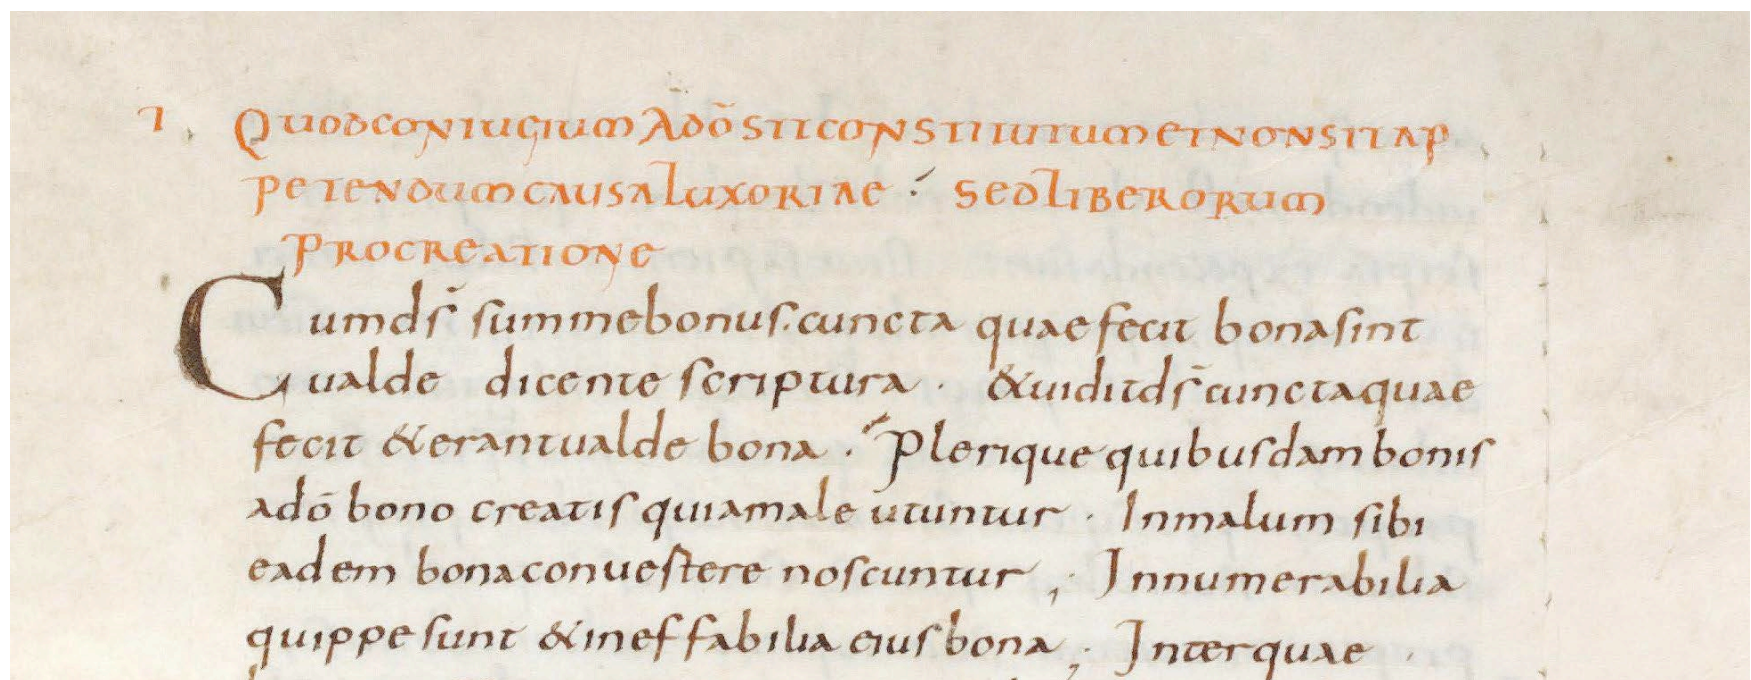 I. Quod coniugium a dō sit constitutum et non sit ap
petendum causa luxoriae : sed liberorum
procreatione
Cum ds̄ summe bonus. cuncta quae fecit bona sint
ualde dicente scriptura. & uidit ds̄ cuncta quae
fecit & erant ualde bona. Plerique quibusdam bonis
a dō bono creatis quia male utuntur. In malum sibi
eadem bona conuestere noscuntur; Innumerabilia
quippe sunt & ineffabilia eius bona; Inter quae